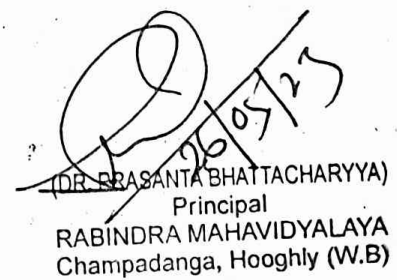 26/05/23
(DR. PRASANTA BHATTACHARYYA)
Principal
RABINDRA MAHAVIDYALAYA
Champadanga, Hooghly (W.B)